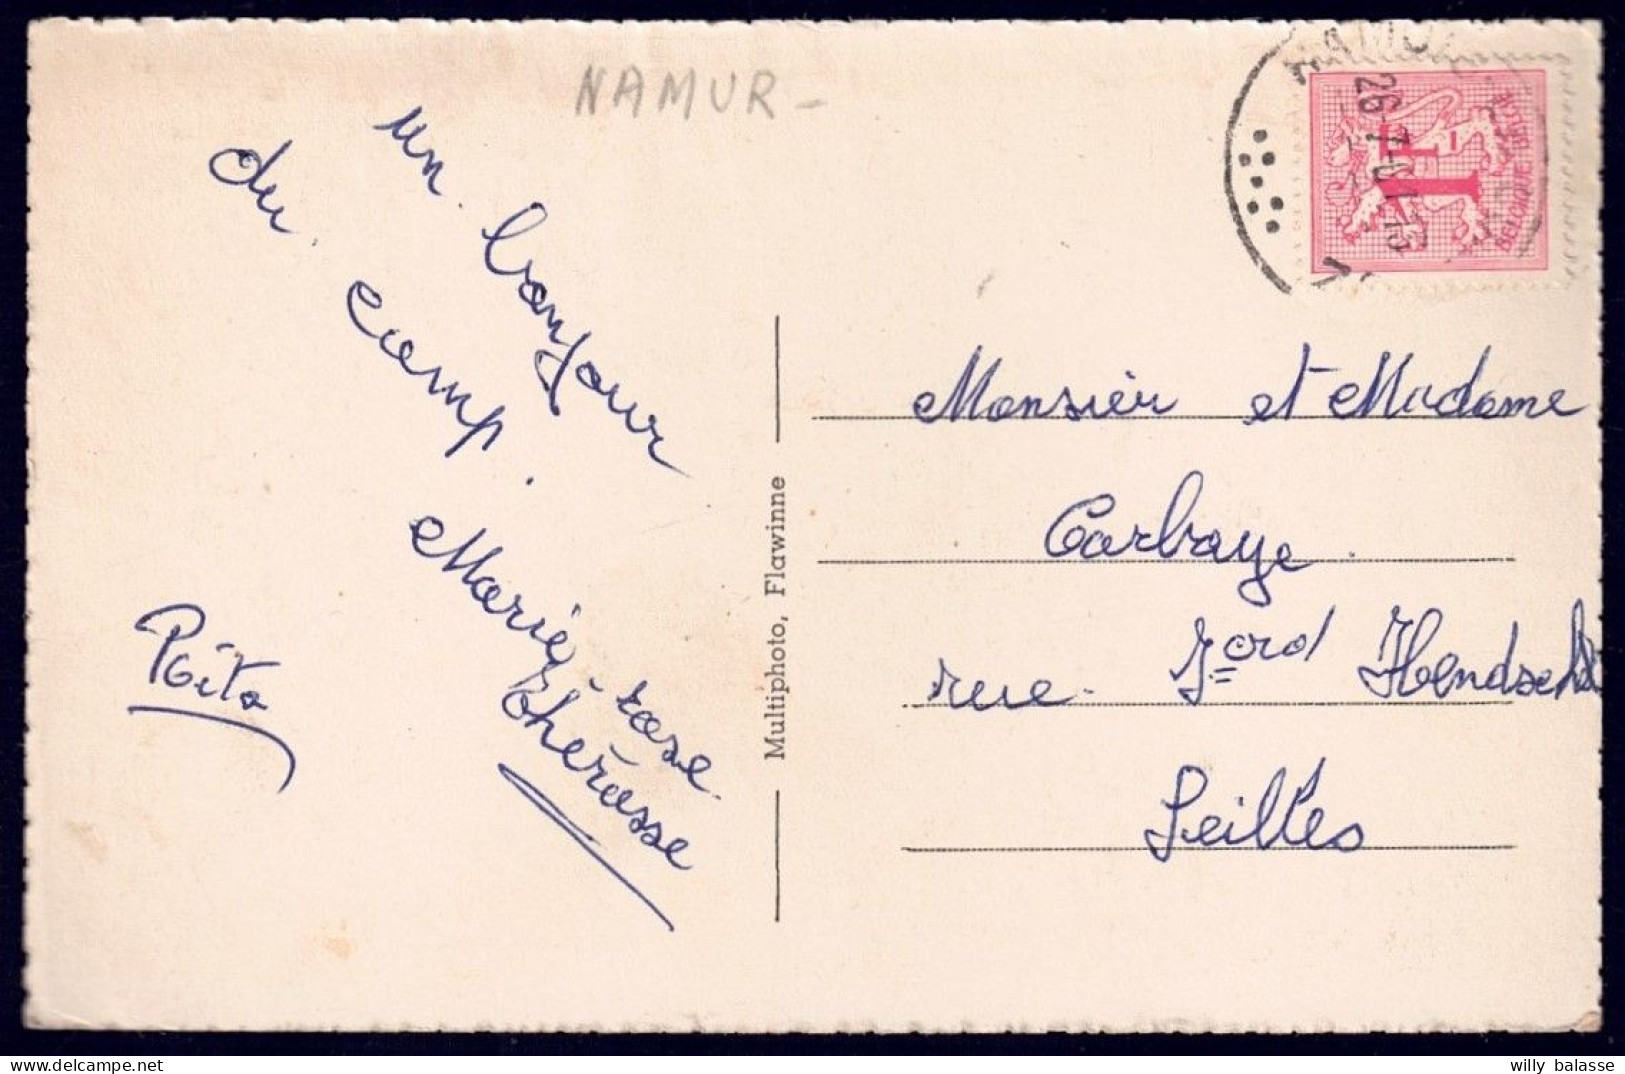 NAMUR -
un bonjour
du camp.
Marie-rose
thérèsse
Rita
Multiphoto, Flawinne
NAMUR
26-7
1
BELGIQUE BELGIE
Monsieur et Madame
Carbaye
rue
Seilles
willy balasse